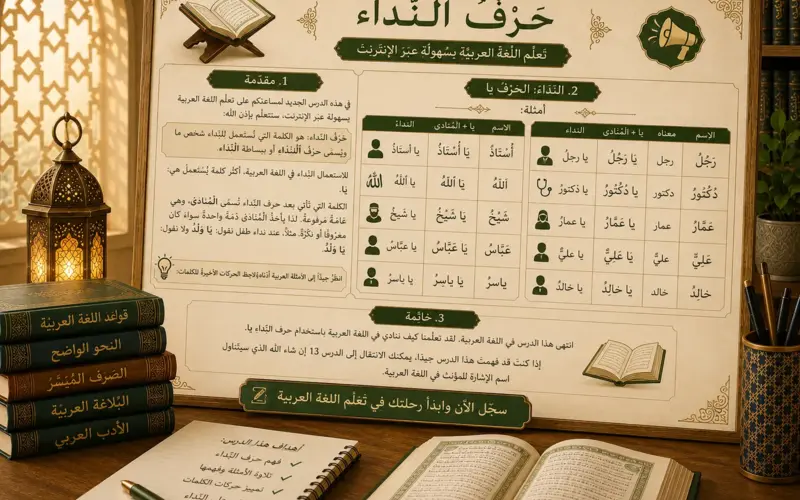 حَرْفُ النِّداء
تَعلَّم اللُّغةَ العربيَّة بسُهولَةٍ عبْرَ الإنترنِتْ
1. مقدّمة
في هذه الدرس الجديد لمساعدتكم على تعلّم اللغة العربية
بسهولة عبر الإنترنت، سنتعلّم بإذن الله:
حَرْفُ النداء: هو الكلمة التي تُستعمل للنِّداء شخص ما
ويُسمّى حرفُ الْنِّدَاءِ أو ببساطة النِّداء.
للاستعمال النِّداء في اللغة العربية، أكثر كلمة يُستعملُ هي:
يَا.
الكلمة التي تأتي بعد حرف النِّداء تُسمّى المُنادَى، وهي
عَامَةً مَرفوعَةً. لذا يأخذُ المُنادَى ضَمَةً واحدةً سواءً كان
معرُوفًا أو نكَرَةً. مثلاً، عند نداء طفل نقول: يَا وَلَدُ ولا نقول:
يَا وَلَدٌ.
انظرْ جيداً إلى الأمثلة العربية أدناه ولاحظ الحركات الأخيرة للكلمات:
2. النّدَاءُ: الحَرْفُ يا
أمثلة:
الاسم معناه يا + الْمُنادَى النداء
رَجُلٌ رجل يَا رَجُلُ يا رجلُ
دُكْتُورٌ دكتور يَا دُكْتُورُ يا دكتورُ
عَمَّارٌ عمار يَا عَمَّارُ يا عمارُ
عَلِيٌّ عليّ يَا عَلِيُّ يا عليُّ
خالِدٌ خالد يَا خالِدُ يا خالدُ
الاسم يا + الْمُنادَى النداءُ
أُسْتَاذٌ يَا أُسْتَاذُ يا أستاذُ
اَللهُ يَا اَللهُ يا اللهُ
الله
شَيْخٌ يَا شَيْخُ يا شيخُ
عَبَّاسٌ يَا عَبَّاسُ يا عبّاسُ
ياسرٌ يَا ياسِرُ يا ياسرُ
3. خاتمة
انتهى هذا الدرس في اللغة العربية. لقد تعلّمنا كيف ننادي في اللغة العربية باستخدام حرف النِّداءِ يا.
إذا كنتَ قد فهمتَ هذا الدرس جيدًا، يمكنك الانتقال إلى الدرس 13 إن شاء الله الذي سيتناول
اسم الإشارة للمؤنث في اللغة العربية.
سجّل الآن وابدأ رحلتك في تَعلّم اللغة العربية
قواعد اللغة العربيّة
النحو الواضح
الصَرف المُيَسَّر
البَلاغة العربيّة
الأدب العربي
أهداف هذا الدرس:
فهم حرف النِّداء
تلاوة الأمثلة وفهمها
تمييز حركات الكلمات
النِّداء